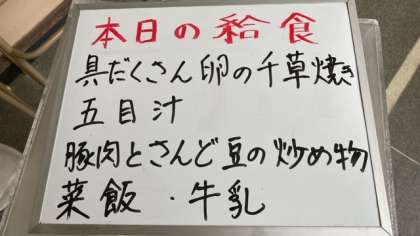 本日の給食
具だくさん卵の千草焼き
五目汁
豚肉とさんど豆の炒め物
菜飯・牛乳